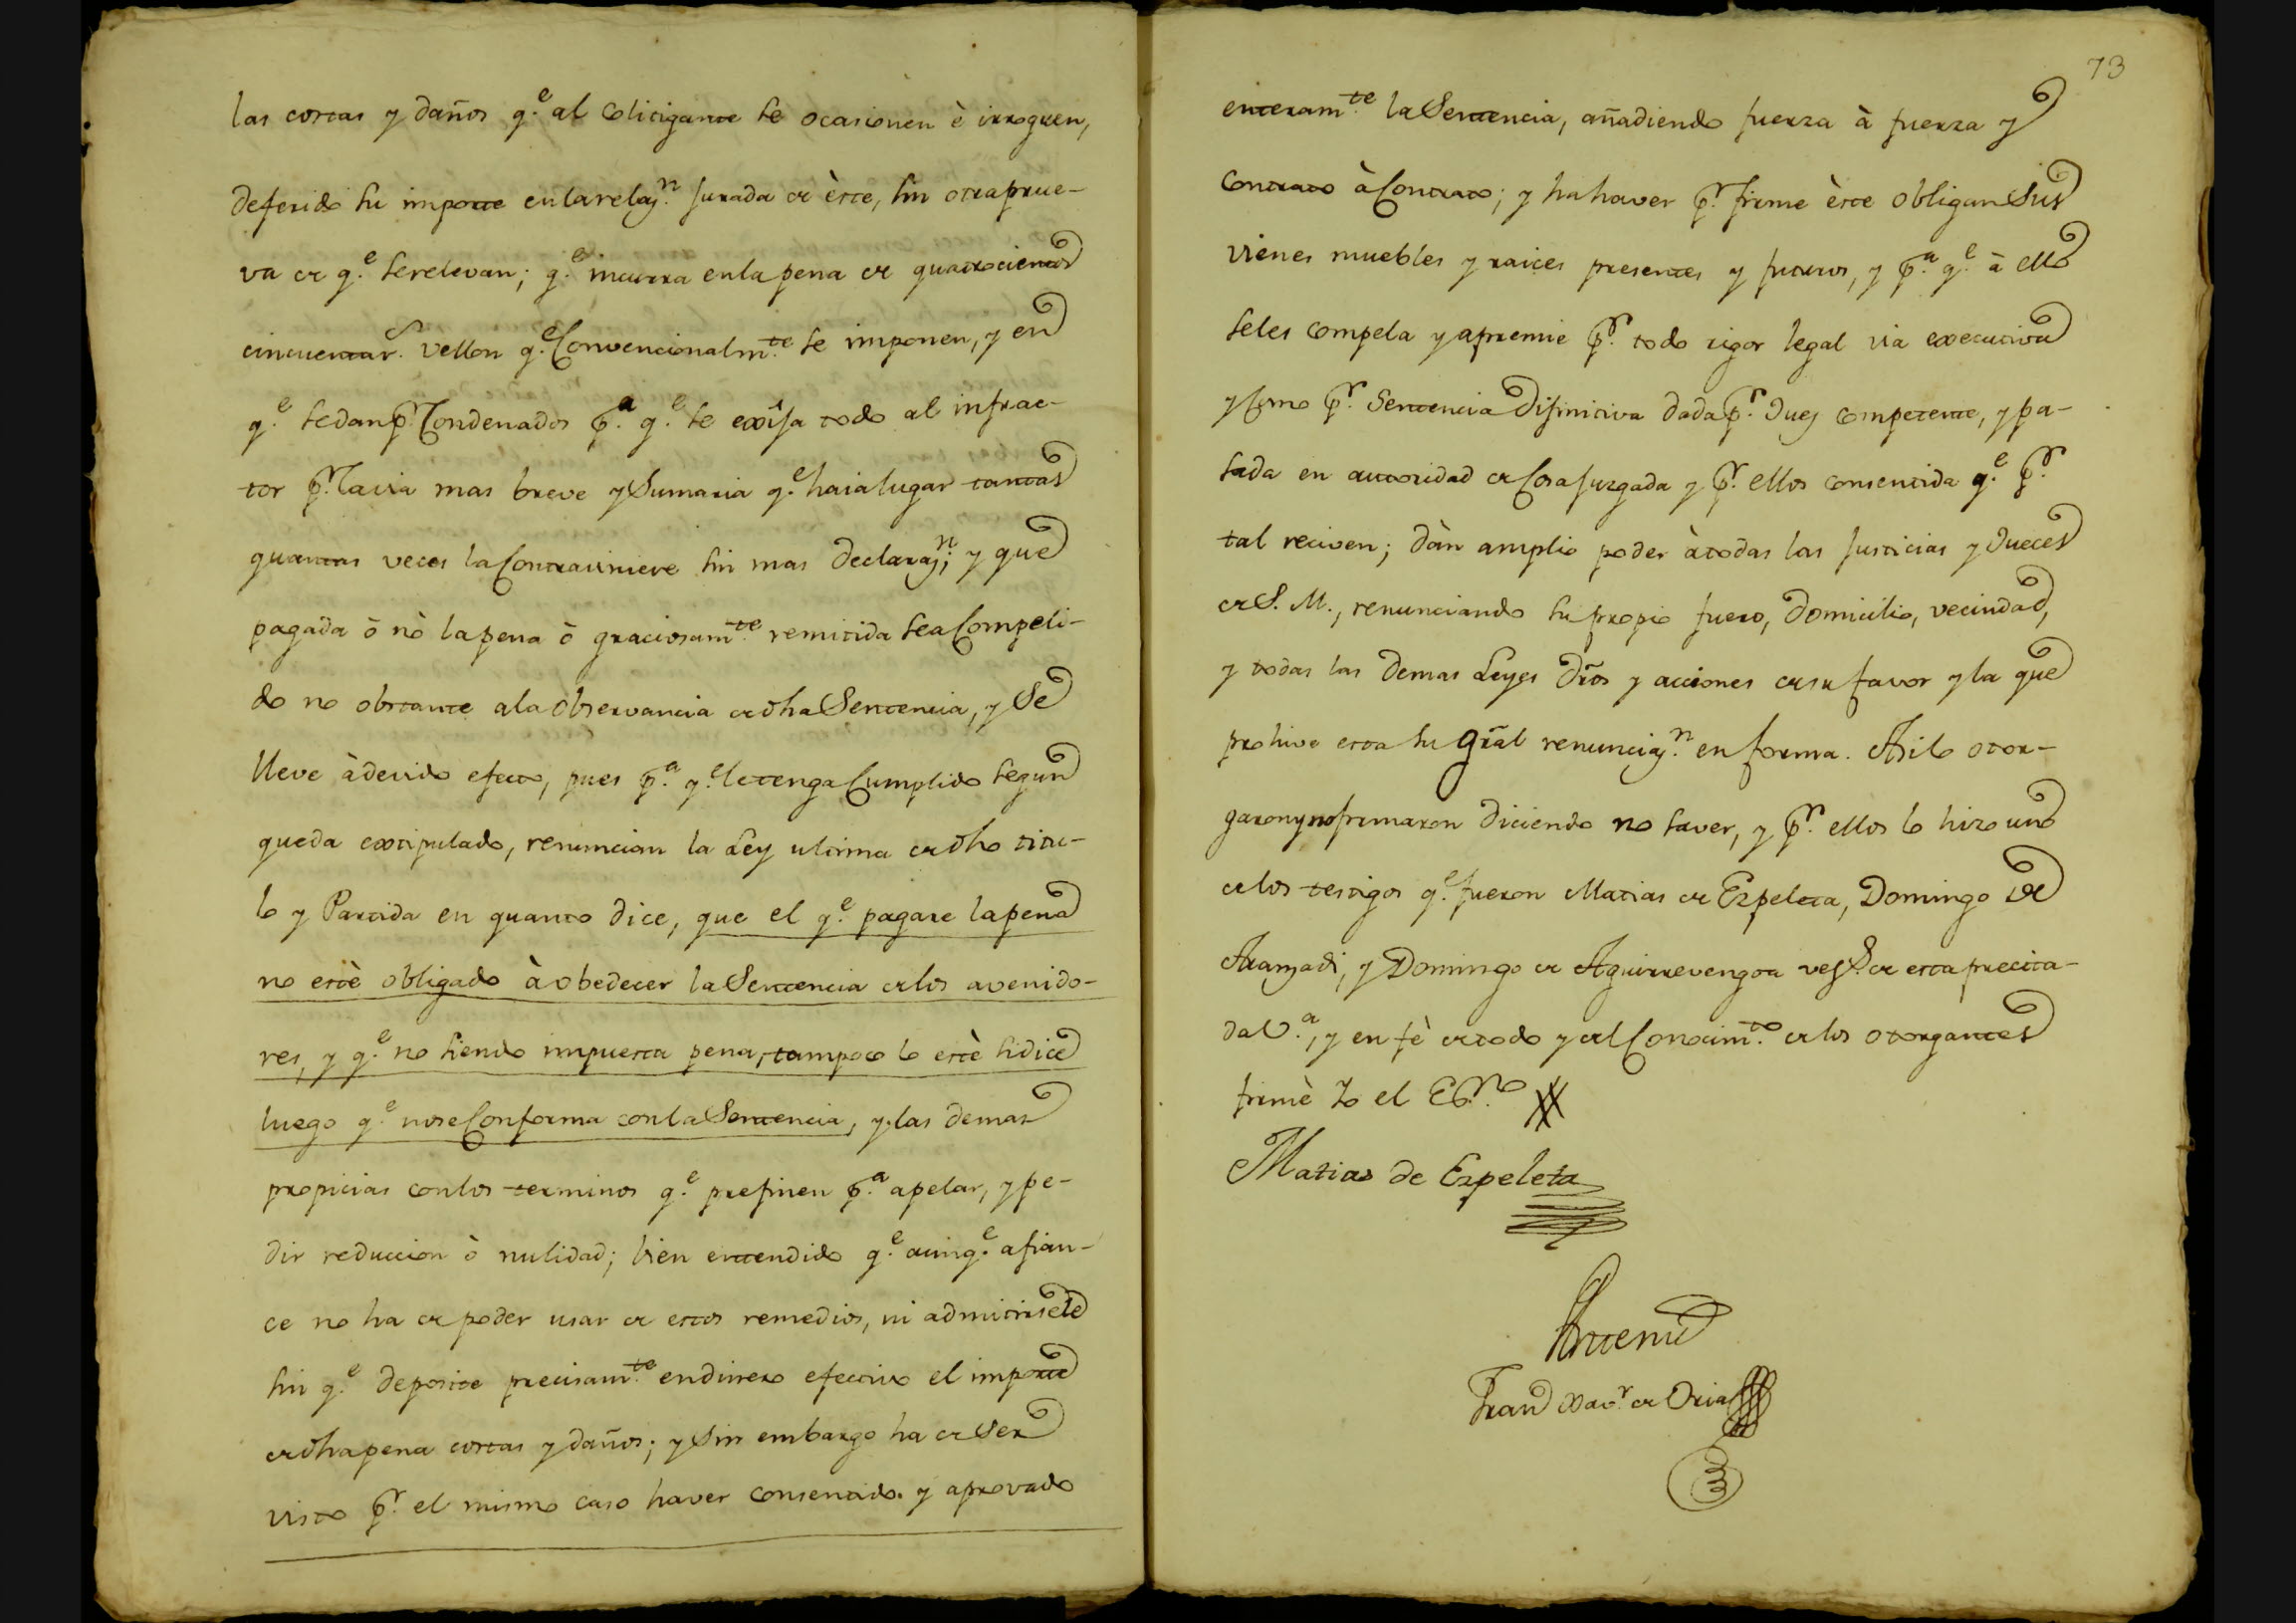 las costas y daños q.e al Colitigante se ocasionen è irroguen,
deferido su importe en la relaz.n jurada de èste, sin otra prue-
va de q.e se relevan; q.e incurra en la pena de quatrocientos
cincuenta r.s vellon q.e Convencionalm.te se imponen, y en
q.e se dan p.r Condenados p.a q.e se exija todo al infrac-
tor p.r la via mas breve y Sumaria q.e haia lugar tantas
quantas veces la Contraviniere sin mas declaraz.n; y que
pagada ò nò la pena ò graciosam.te remitida sea Compeli-
do no obstante a la observancia de dha Sentencia, y Se
lleve à devido efecto, pues p.a q.e le tenga Cumplido segun
queda extipulado, renuncian la Ley ultima de dho titu-
lo y Partida en quanto dice, que el q.e pagare la pena
no estè obligado à obedecer la Sentencia de los avenido-
res, y q.e no siendo impuesta pena, tampoco lo estè si dice
luego q.e no se Conforma con la Sentencia, y las demas
propicias con los terminos q.e prefinen p.a apelar, y pe-
dir reduccion ò nulidad; bien entendido q.e aunq.e afian-
ce no ha de poder usar de estos remedios, ni admitirsele
sin q.e deposite precisam.te en dinero efectivo el importe
de dha pena costas y daños; y Sin embargo ha de Ser
visto p.r el mismo caso haver consentido y aprovado
73
enteram.te la Sentencia, añadiendo fuerza à fuerza y
Contrato à Contrato; y ha haver p.r firme èste obligan Sus
vienes muebles y raices presentes y futuros, y p.a q.e à ello
se les compela y apremie p.r todo rigor legal via executiva
y Como p.r Sentencia Difinitiva dada p.r Juez competente, y pa-
sada en autoridad de Cosa juzgada y p.r ellos consentida q.e p.r
tal reciven; dàn amplio poder à todas las Justicias y Jueces
de S. M., renunciando su propio fuero, Domicilio, vecindad,
y todas las demas Leyes drõs y acciones de su favor y la que
prohive esta su grãl renunciaz.n en forma. Asi lo otor-
garon y no firmaron diciendo no saver, y p.r ellos lo hizo uno
de los testigos q.e fueron Matias de Ezpeleta, Domingo de
Aranzadi, y Domingo de Aguirrevengoa vez.s de esta precita-
da V.a, y en fè de todo y del Conocim.to de los otorgantes
firmè Yo el Ess.no
Matias de Ezpeleta
Ante mi
Fran.co Xav.r de Oria